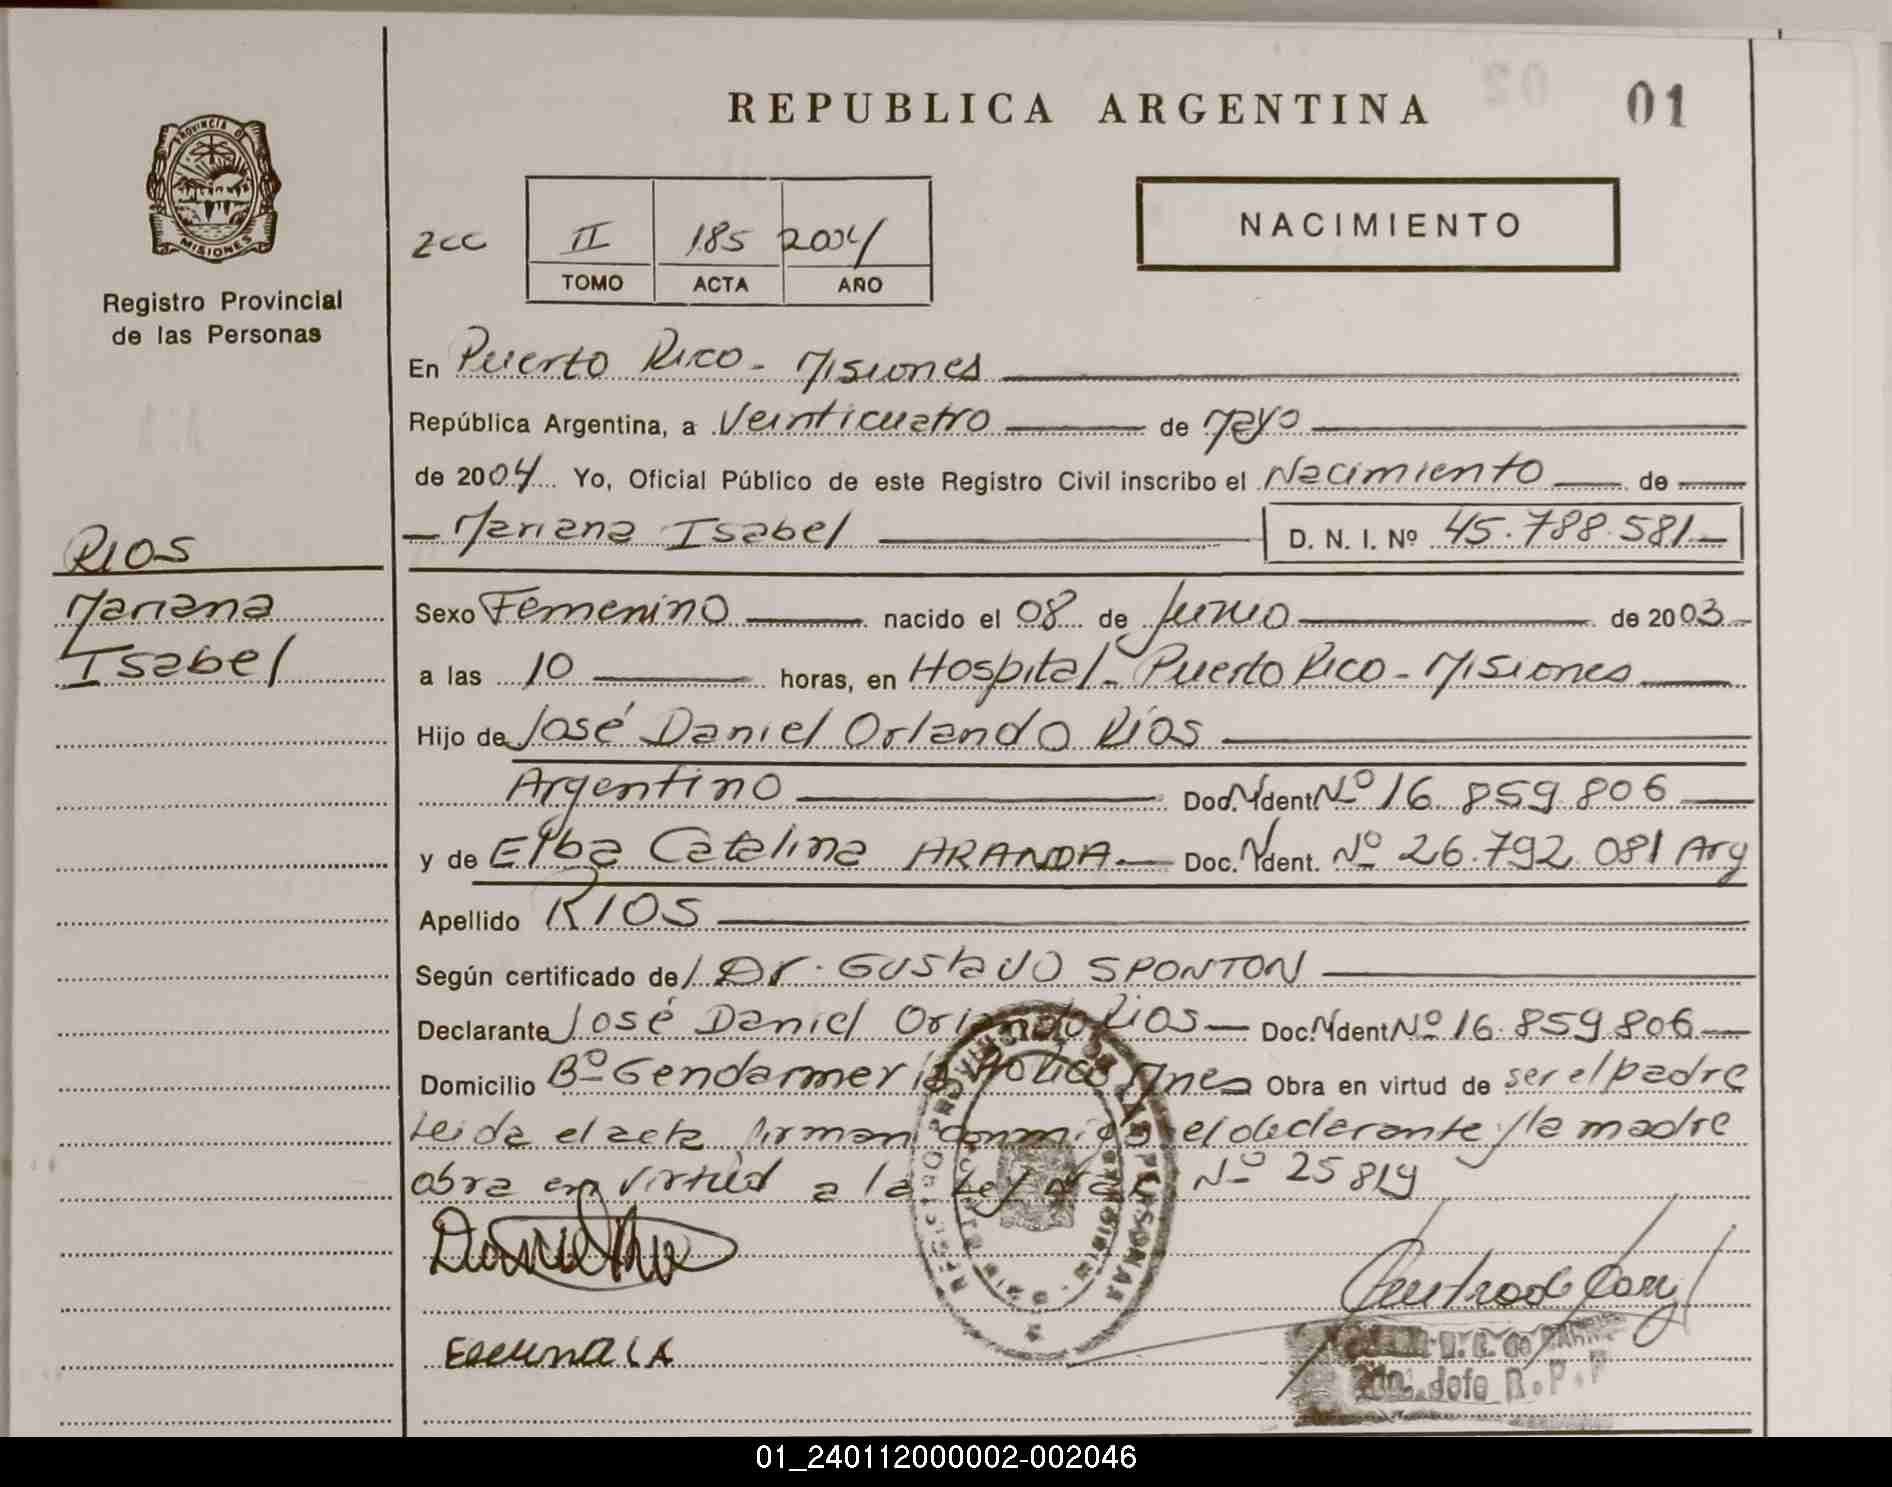 REPUBLICA ARGENTINA
01
PROVINCIA DE
MISIONES
Registro Provincial
de las Personas
2cc
II 185 2004
TOMO ACTA AÑO
NACIMIENTO
En Puerto Rico - Misiones
República Argentina, a Veinticuatro de Mayo
de 2004 Yo, Oficial Público de este Registro Civil inscribo el Nacimiento de
Mariana Isabel D. N. I. Nº 45.788.581
RIOS
Mariana
Isabel
Sexo Femenino nacido el 08 de Junio de 2003
a las 10 horas, en Hospital - Puerto Rico - Misiones
Hijo de José Daniel Orlando Ríos
Argentino Doc. Ident Nº 16.859.806
y de Elba Catalina ARANDA Doc. Ident. Nº 26.792.081 Arg
Apellido RIOS
Según certificado de Dr. Gustavo SPONTON
Declarante José Daniel Orlando Rios Doc. Ident Nº 16.859.806
Domicilio Bº Gendarmeria Mnes Obra en virtud de ser el padre
Leida el acta firman conmigo el declarante y la madre
obra en virtud a la Ley Nº 25819
REGISTRO PROVINCIAL DE LAS PERSONAS
Jefe R.P.P
01_240112000002-002046